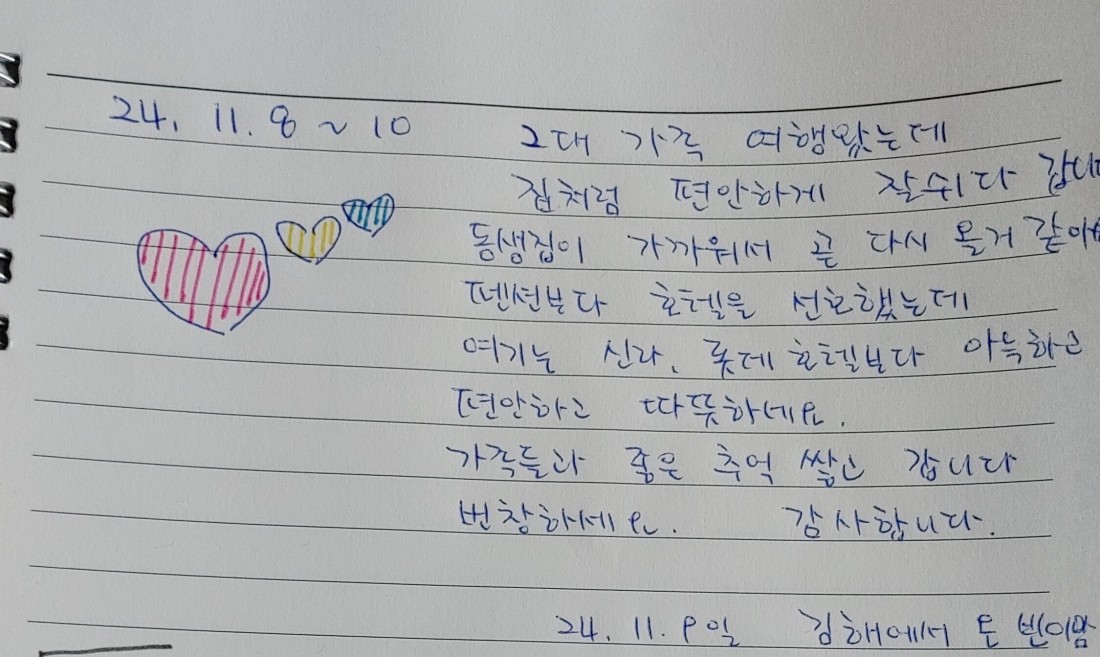 24. 11. 8 ~ 10 2대 가족 여행왔는데
집처럼 편안하게 잘쉬다 갑니다
동생집이 가까워서 곧 다시 올거 같아
펜션보다 호텔을 선호했는데
여기는 신라, 롯데호텔보다 아늑하고
편안하고 따뜻하네요.
가족들과 좋은 추억 쌓고 갑니다
번창하세요. 감사합니다.
24. 11. 9일 김해에서 온 빈이맘